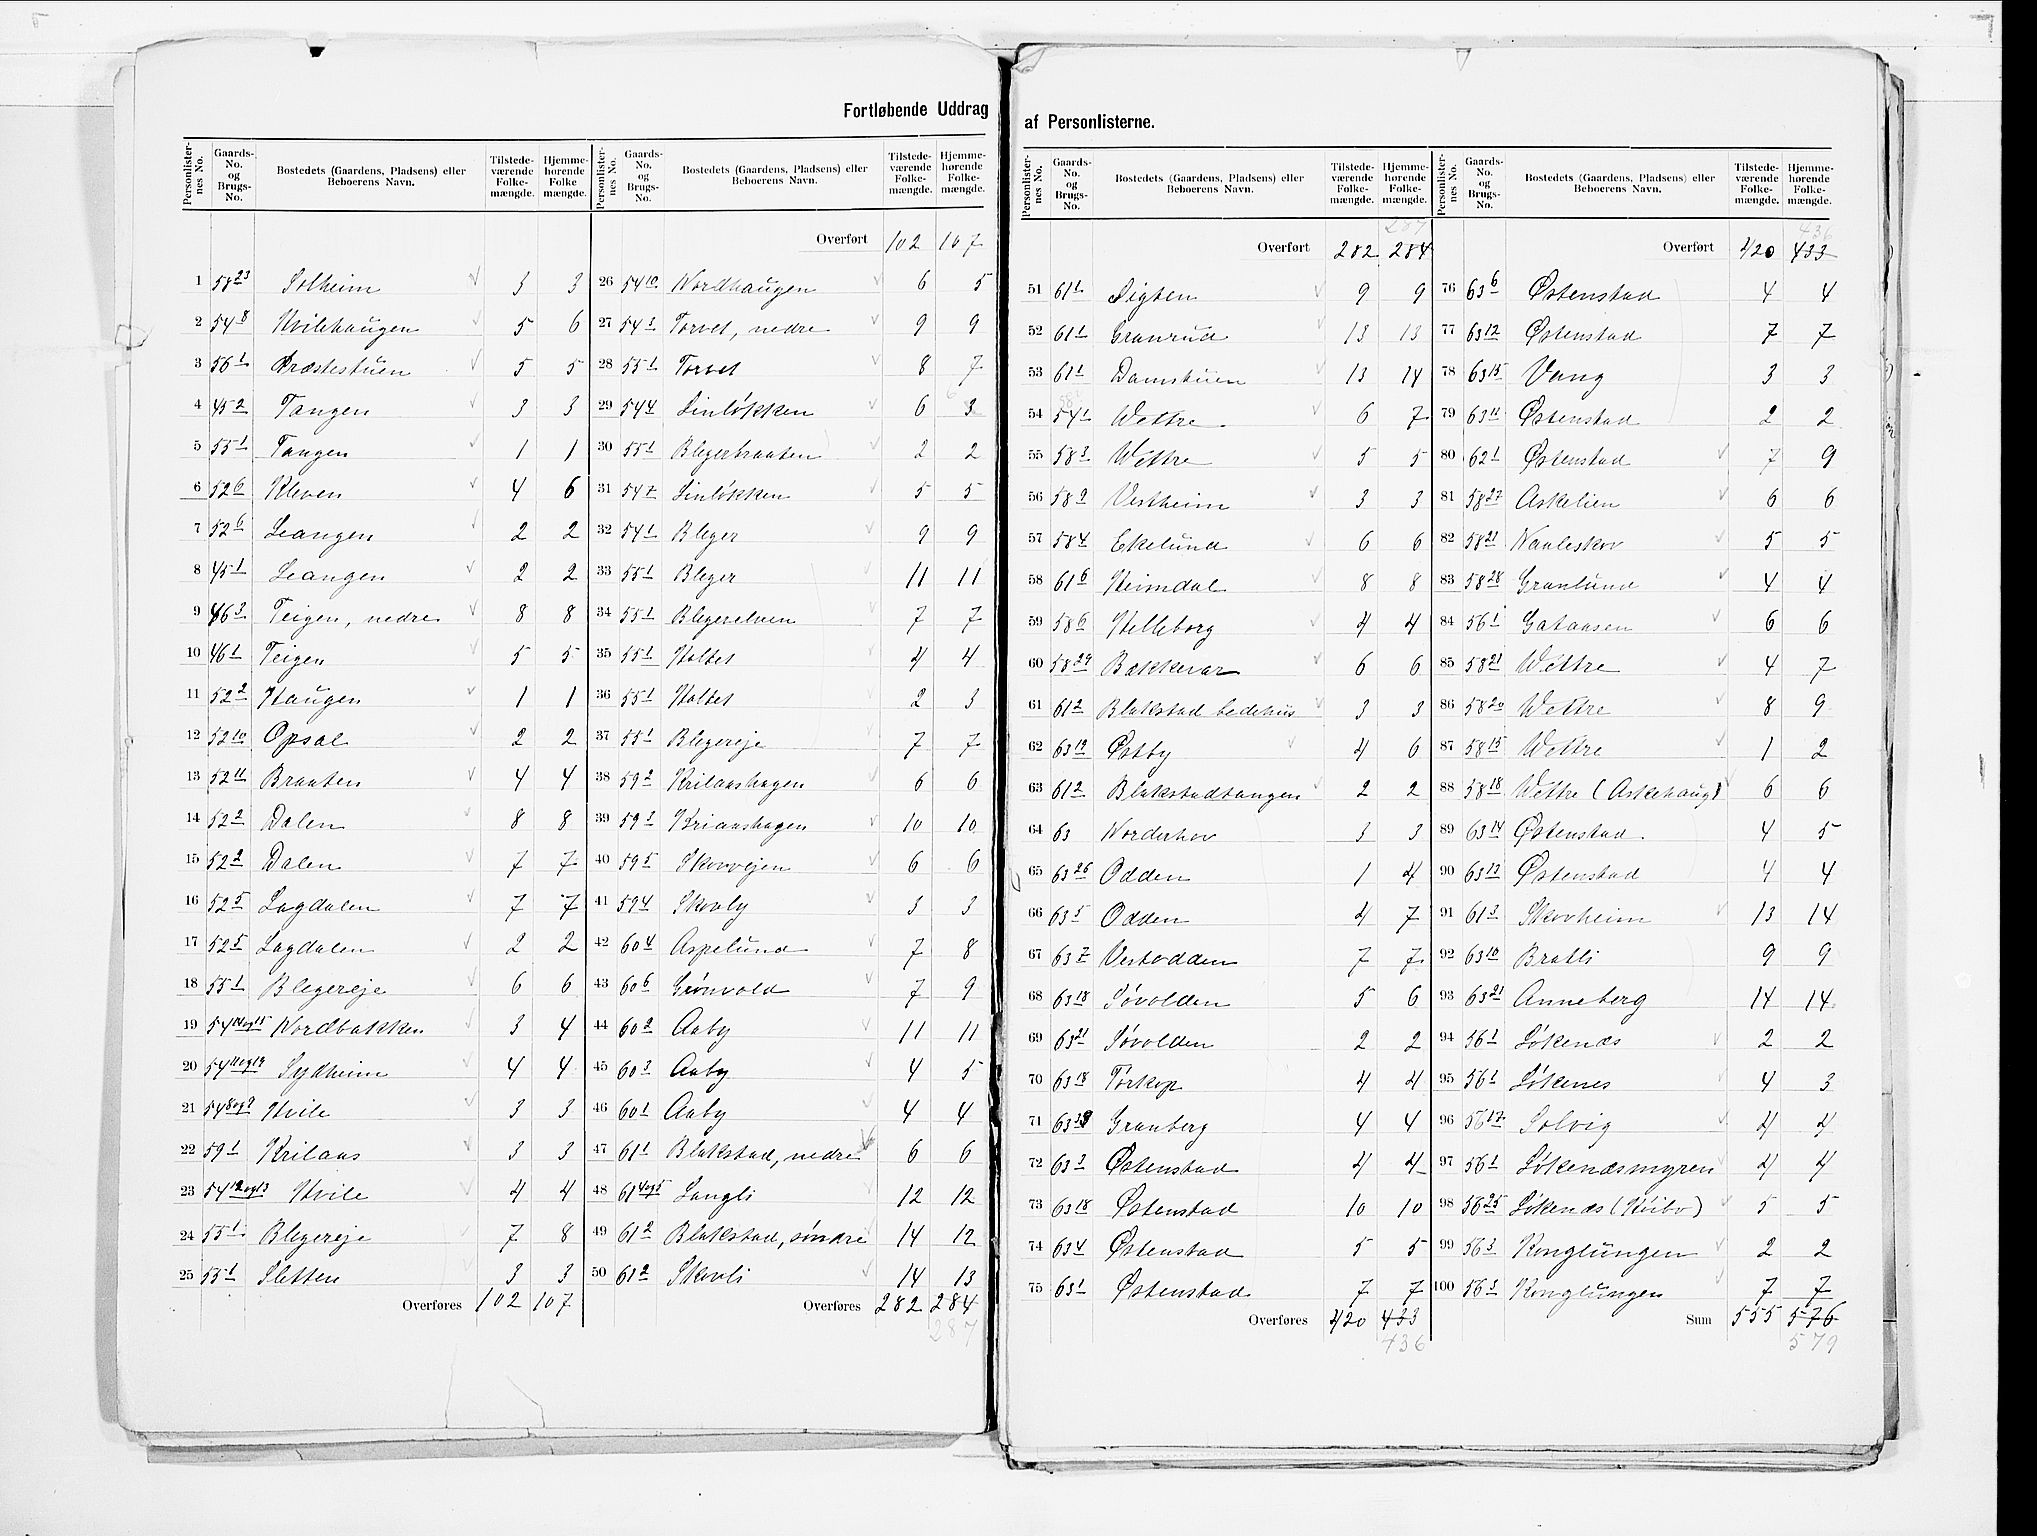 Fortløbende Uddrag af Personlisterne.
Personlister-nes No. | Gaards-No. og Brugs-No. | Bostedets (Gaardens, Pladsens) eller Beboerens Navn. | Tilstede-værende Folke-mængde. | Hjemme-hørende Folke mængde.
1 58 23 Solheim 3 3
2 54 8 Hvilehaugen 5 6
3 56 1 Præstestuen 5 5
4 45 2 Tangen 3 3
5 55 1 Tangen 1 1
6 52 6 Kleven 4 6
7 52 6 Leangen 2 2
8 45 1 Leangen 2 2
9 46 3 Teigen, nedre 8 8
10 46 1 Teigen 5 5
11 52 2 Haugen 1 1
12 52 10 Opsal 2 2
13 52 11 Braaten 4 4
14 52 2 Dalen 8 8
15 52 2 Dalen 7 7
16 52 5 Lagdalen 7 7
17 52 5 Lagdalen 2 2
18 55 1 Blegereje 6 6
19 54 14og15 Nordbakken 3 4
20 54 11og14 Sydheim 4 4
21 54 8og9 Hvile 3 3
22 59 1 Krilaas 3 3
23 54 12og13 Hvile 4 4
24 55 1 Blegereje 7 8
25 55 1 Sletten 3 3
Overføres 102 107
Personlister-nes No. | Gaards-No. og Brugs-No. | Bostedets (Gaardens, Pladsens) eller Beboerens Navn. | Tilstede-værende Folke-mængde. | Hjemme-hørende Folke-mængde.
Overført 102 107
26 54 10 Nordhaugen 6 5
27 54 1 Torvet, nedre 9 9
28 55 1 Torvet 8 7
29 54 4 Linløkken 6 3 6
30 55 1 Blegerbraaten 2 2
31 54 7 Linløkken 5 5
32 54 1 Bleger 9 9
33 55 1 Bleger 11 11
34 55 1 Blegerelven 7 7
35 55 1 Holtet 4 4
36 55 1 Holtet 2 3
37 55 1 Blegereje 7 7
38 59 2 Krilaashagen 6 6
39 59 1 Kriaashagen 10 10
40 59 5 Skovvejen 6 6
41 59 4 Skovly 3 3
42 60 4 Aspelund 7 8
43 60 6 Grønvold 7 9
44 60 2 Aaby 11 11
45 60 3 Aaby 4 5
46 60 1 Aaby 4 4
47 61 1 Blakstad, nedre 6 6
48 61 4og5 Langli 12 12
49 61 2 Blakstad, søndre 14 12
50 61 2 Skovli 14 13
Overføres 282 284
287
Personlister-nes No. | Gaards-No. og Brugs-No. | Bostedets (Gaardens, Pladsens) eller Beboerens Navn. | Tilstede-værende Folke-mængde. | Hjemme-hørende Folke-mængde.
287
Overført 282 284
51 61 1 Sigten 9 9
52 61 1 Granrud 13 13
53 61 1 Damstuen 13 14
54 54 1 Wettre 6 7
55 58 3 Wettre 5 5
56 58 9 Vestheim 3 3
57 58 4 Ekelund 6 6
58 61 6 Heimdal 8 8
59 58 6 Helleborg 4 4
60 58 29 Bakkevar 6 6
61 61 2 Blakstad bedehus 3 3
62 63 19 Østby 4 6
63 61 2 Blakstadtangen 2 2
64 63 Norderhov 3 3
65 63 26 Odden 1 4
66 63 5 Odden 4 7
67 63 7 Vestodden 7 7
68 63 18 Søvolden 5 6
69 63 21 Søvolden 2 2
70 63 18 Tørkop 4 4
71 63 Granberg 4 4
72 63 3 Østenstad 4 4
73 63 18 Østenstad 10 10
74 63 4 Østenstad 5 5
75 63 1 Østenstad 7 7
Overføres 420 433
436
Personlister-nes No. | Gaards-No. og Brugs-No. | Bostedets (Gaardens, Pladsens) eller Beboerens Navn. | Tilstede-værende Folke-mængde. | Hjemme-hørende Folke-mængde.
436
Overført 420 433
76 63 6 Østenstad 4 4
77 63 12 Østenstad 7 7
78 63 15 Vang 3 3
79 63 11 Østenstad 2 2
80 62 1 Østenstad 7 9
81 58 27 Askelien 6 6
82 58 21 Naaleskov 5 5
83 58 28 Granlund 4 4
84 56 1 Gataasen 6 6
85 58 21 Wettre 4 7
86 58 20 Wettre 8 9
87 58 15 Wettre 1 2
88 58 18 Wettre (Askehaug) 6 6
89 63 14 Østenstad 4 5
90 63 13 Østenstad 4 4
91 61 3 Skovheim 13 14
92 63 10 Bratli 9 9
93 63 21 Anneberg 14 14
94 56 1 Løkenæs 2 2
95 56 1 Løkenes 4 3
96 56 17 Solvig 4 4
97 56 1 Løkenæsmyren 4 4
98 56 25 Løkenæs (Kvibo) 5 5
99 56 3 Konglungen 2 2
100 56 3 Konglungen 7 7
Sum 555 576
579